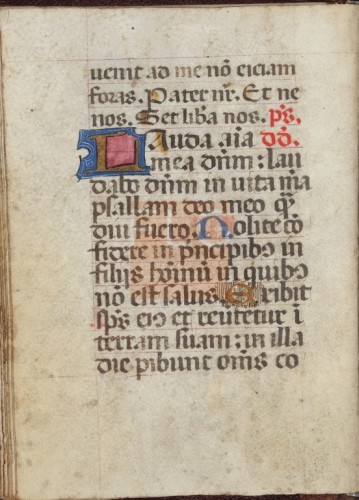 uenit ad me nō eiciam
foras. Pater nr̄. Et ne
nos. Set liba nos. ps̄.
Lauda aīa dd̄.
mea dn̄m : lau
dabo dn̄m in uita m̄a
psallam deo meo qͣ
diu fuero. Nolite cō
fidere in pͥncipibꝰ in
filijs hoīnū in quibꝰ
nō est salus. Exibit
sps̄ eiꝰ et reuertetur ī
terram suam : in illa
die pibunt om̄s co